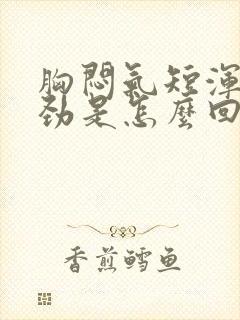 胸悶氣短渾
勁是怎麼回
香煎鱈鱼